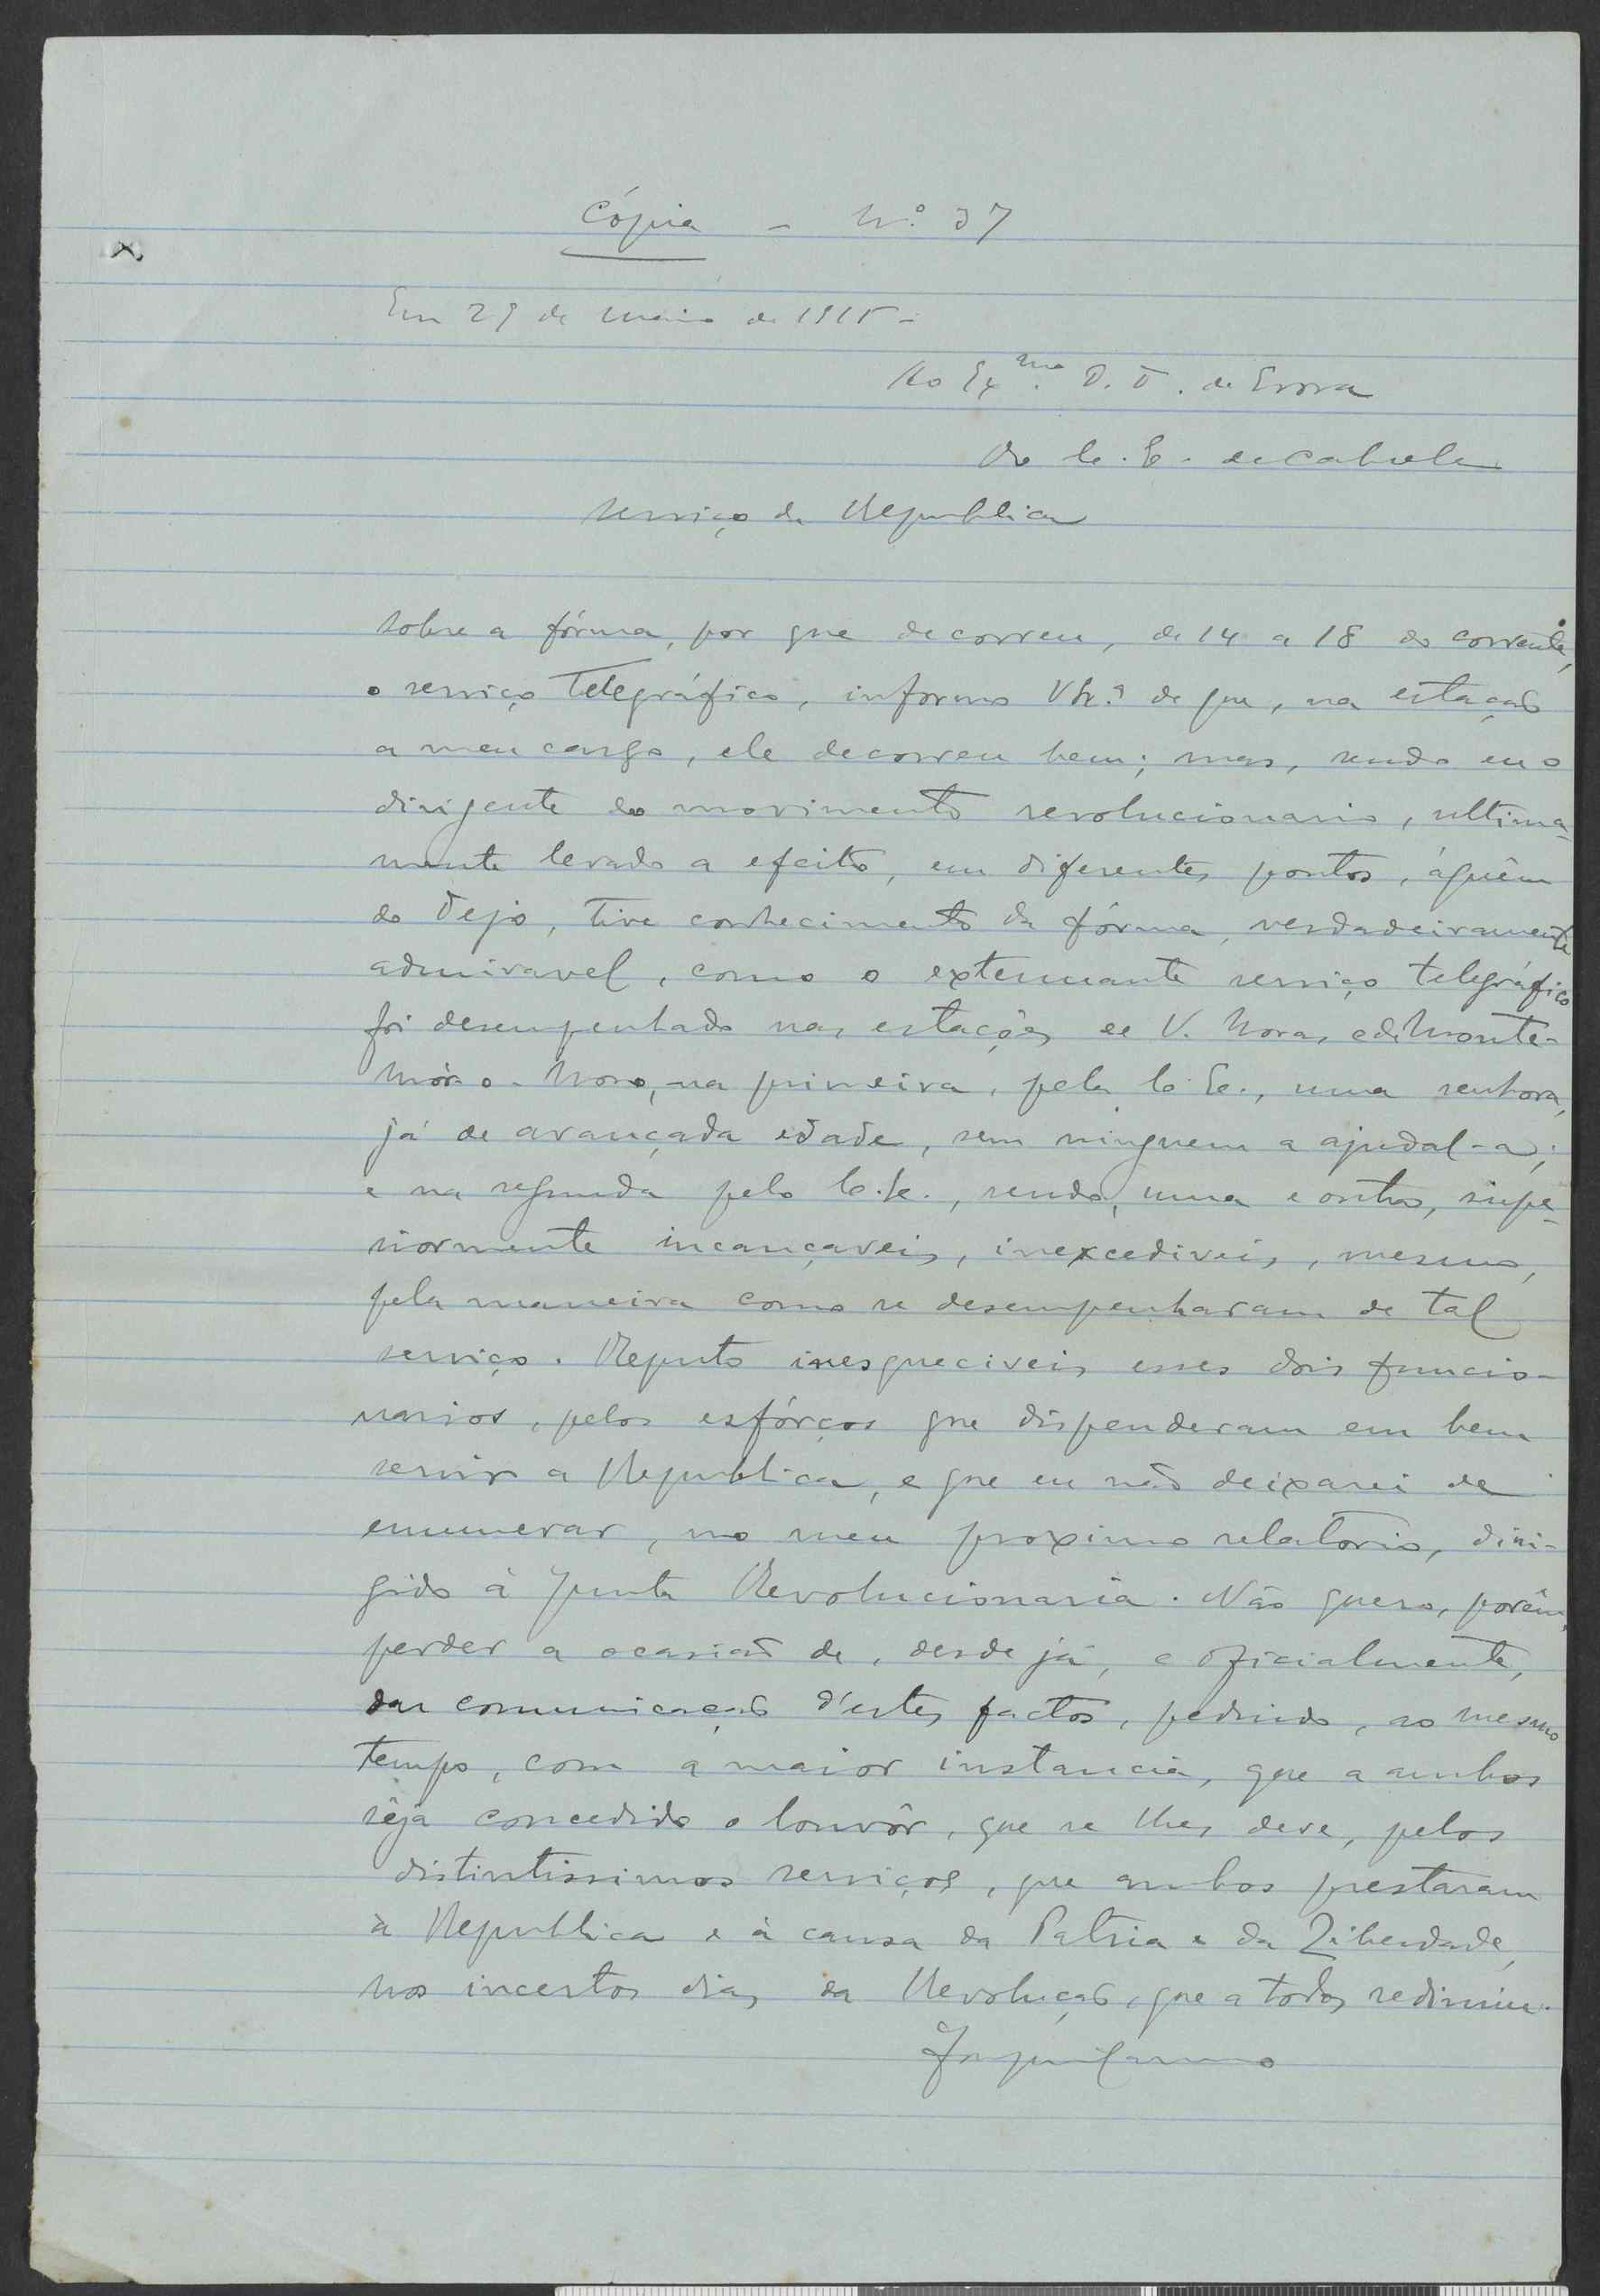 Cópia - N.º 37
Em 29 de maio de 1915 -
Ao Ex.mo D. T. de Evora
Do C. E. de Cabrela
Serviço da Republica
Sobre a fórma, por que decorreu, de 14 a 18 do corrente,
o serviço Telegráfico, informo V Ex.ª de que, na estação
a meu cargo, ele decorreu bem; mas, sendo eu o
dirigente do movimento revolucionario, ultima-
mente levado a efeito, em diferentes pontos, áquêm
do Tejo, tive conhecimento da fórma, verdadeiramente
admiravel, como o extenuante serviço telegráfico
foi desempenhado nas estações de V. Novas e de Monte-
mór-o-Novo, na primeira, pela C. E., uma senhora,
já de avançada edade, sem ninguem a ajudal-a;
e na segunda pelo C. E., sendo, uma e outro, supe-
riormente incançaveis, inexcediveis, mesmo,
pela maneira como se desempenharam de tal
serviço. Reputo inesqueciveis esses dois funcio-
narios, pelos esfórços que dispenderam em bem
servir a Republica, e que eu não deixarei de
enumerar, no meu proximo relatorio, diri-
gido á Junta Revolucionaria. Não quero, porêm,
perder a ocasião de, desde já, e oficialmente,
dar comunicação d'estes factos, pedindo, ao mesmo
tempo, com a maior instancia, que a ambos
sêja concedido o louvôr, que se lhes deve, pelos
distintissimos serviços, que ambos prestaram
à Republica e á causa da Patria e da Liberdade,
nos incertos dias da Revolução, que a todos redimiu.